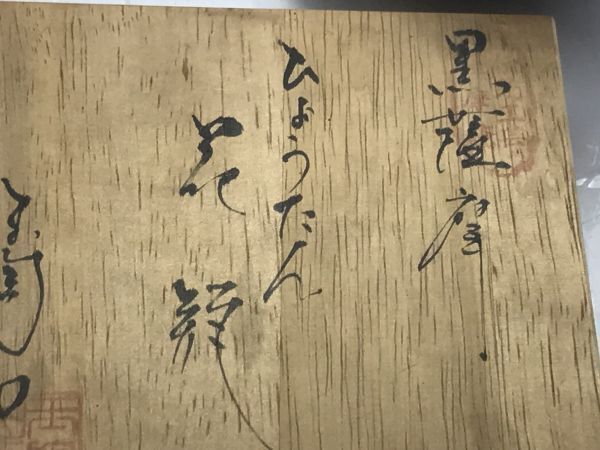 黒薩摩
ひょうたん
花瓶